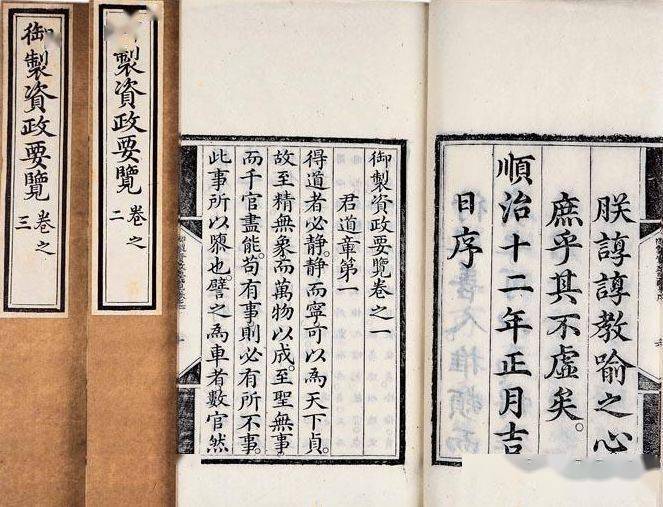 朕諄諄教喻之心
庶乎其不虛矣。
順治十二年正月吉
日序
御製資政要覽卷之一
君道章第一
得道者必静。静而寧可以為天下貞。
故至精無象而萬物以成。至聖無事
而千官盡能。苟有事則必有所不事。
此事所以隳也。譬之為車者數官然
製資政要覽 卷之二
御製資政要覽 卷之三